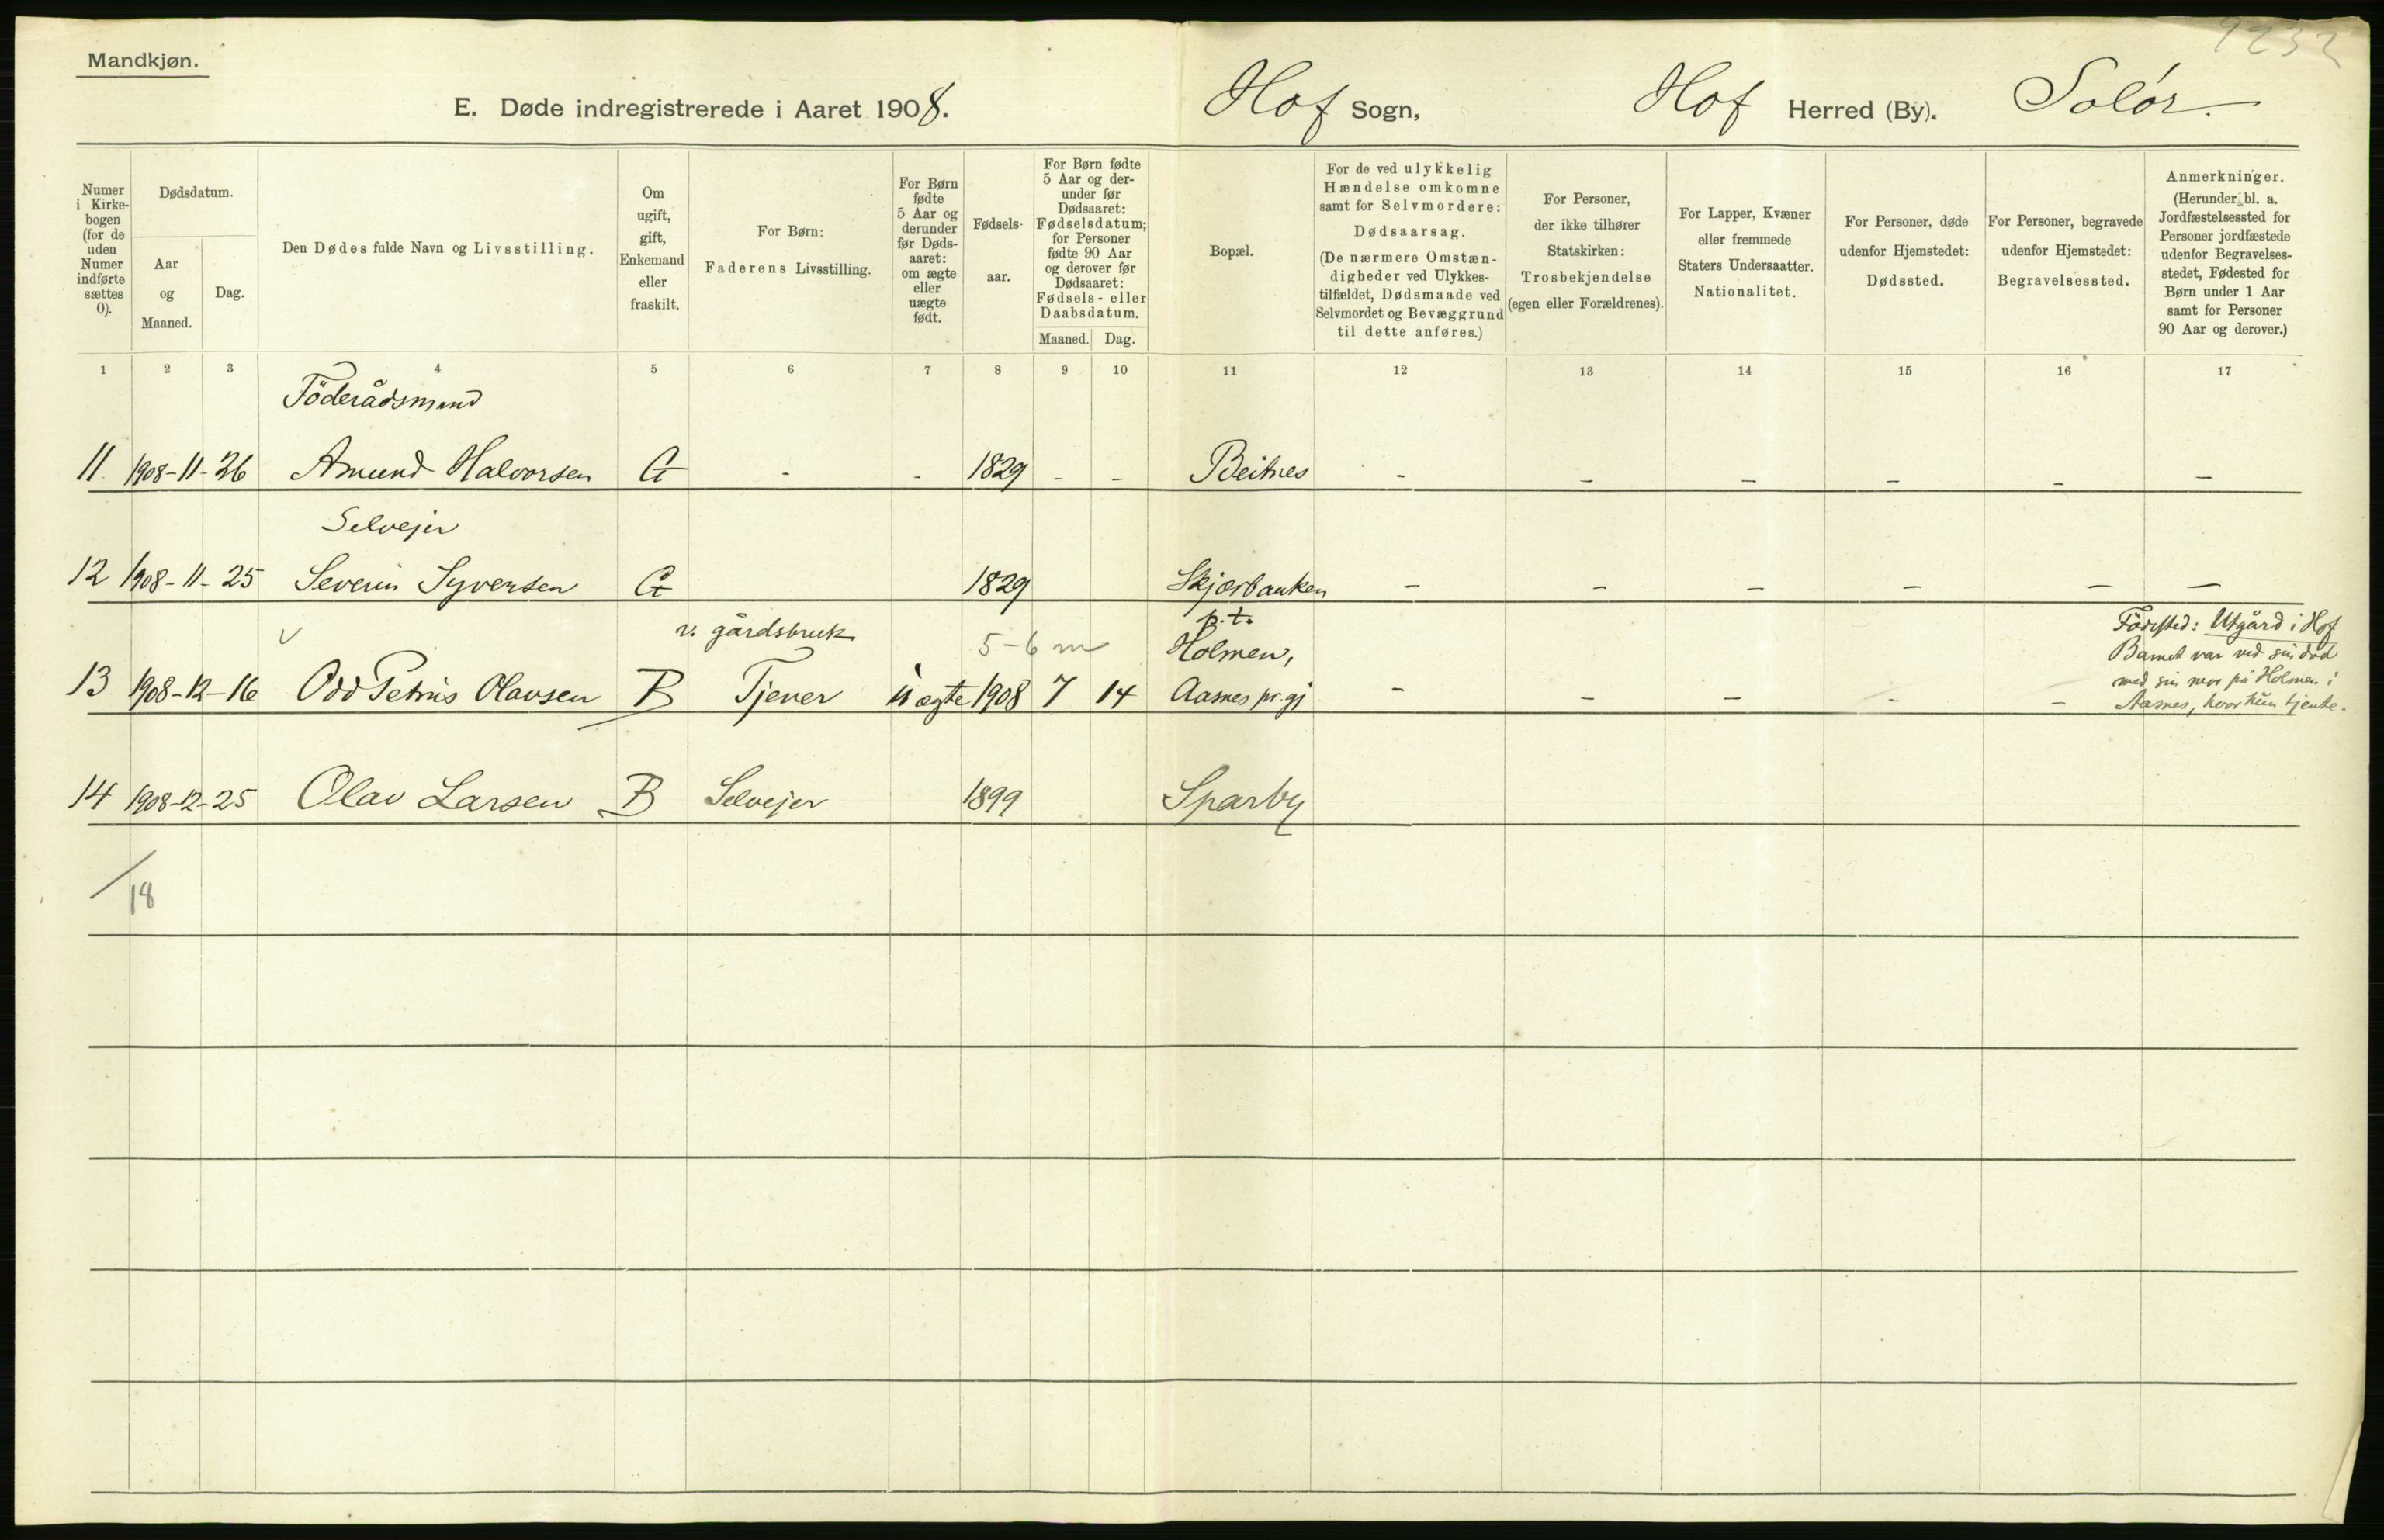 9232
Mandkjøn.
E. Døde indregistrerede i Aaret 1908. Hof Sogn, Hof Herred (By). Solör.
Numer i Kirkebogen (for de uden Numer indførte sættes 0).
Dødsdatum.
Aar og Maaned.
Dag.
Den Dødes fulde Navn og Livsstilling.
Om ugift, gift, Enkemand eller fraskilt.
For Børn: Faderens Livsstilling.
For Børn fødte 5 Aar og derunder før Dødsaaret: om ægte eller uægte født.
Fødselsaar.
For Børn fødte 5 Aar og derunder før Dødsaaret: Fødselsdatum; for Personer fødte 90 Aar og derover før Dødsaaret: Fødsels- eller Daabsdatum.
Maaned. Dag.
Bopæl.
For de ved ulykkelig Hændelse omkomne samt for Selvmordere: Dødsaarsag. (De nærmere Omstændigheder ved Ulykkestilfældet, Dødsmaade ved Selvmordet og Bevæggrund til dette anføres.)
For Personer, der ikke tilhører Statskirken: Trosbekjendelse (egen eller Forældrenes).
For Lapper, Kvæner eller fremmede Staters Undersaatter. Nationalitet.
For Personer, døde udenfor Hjemstedet: Dødssted.
For Personer, begravede udenfor Hjemstedet: Begravelsessted.
Anmerkninger. (Herunder bl. a. Jordfæstelsessted for Personer jordfæstede udenfor Begravelsesstedet, Fødested for Børn under 1 Aar samt for Personer 90 Aar og derover.)
1 2 3 4 5 6 7 8 9 10 11 12 13 14 15 16 17
Föderådsmand
11 1908-11-26 Amund Halvorsen G - - 1829 - - Beitnes - - - - - -
Selvejer
12 1908-11-25 Severin Syversen G 1829 Skjærbanken - - - - - -
v. gårdsbruk 5-6 m p.t. Holmen,
13 1908-12-16 Odd Petrus Olavsen B Tjener uægte 1908 7 14 Aasnes pr.gj - - - - -
Födested: Utgård i Hof
Barnet var ved sin död
med sin mor på Holmen i
Aasnes, hvor hun tjente.
14 1908-12-25 Olav Larsen B Selvejer 1899 Sparby
/18